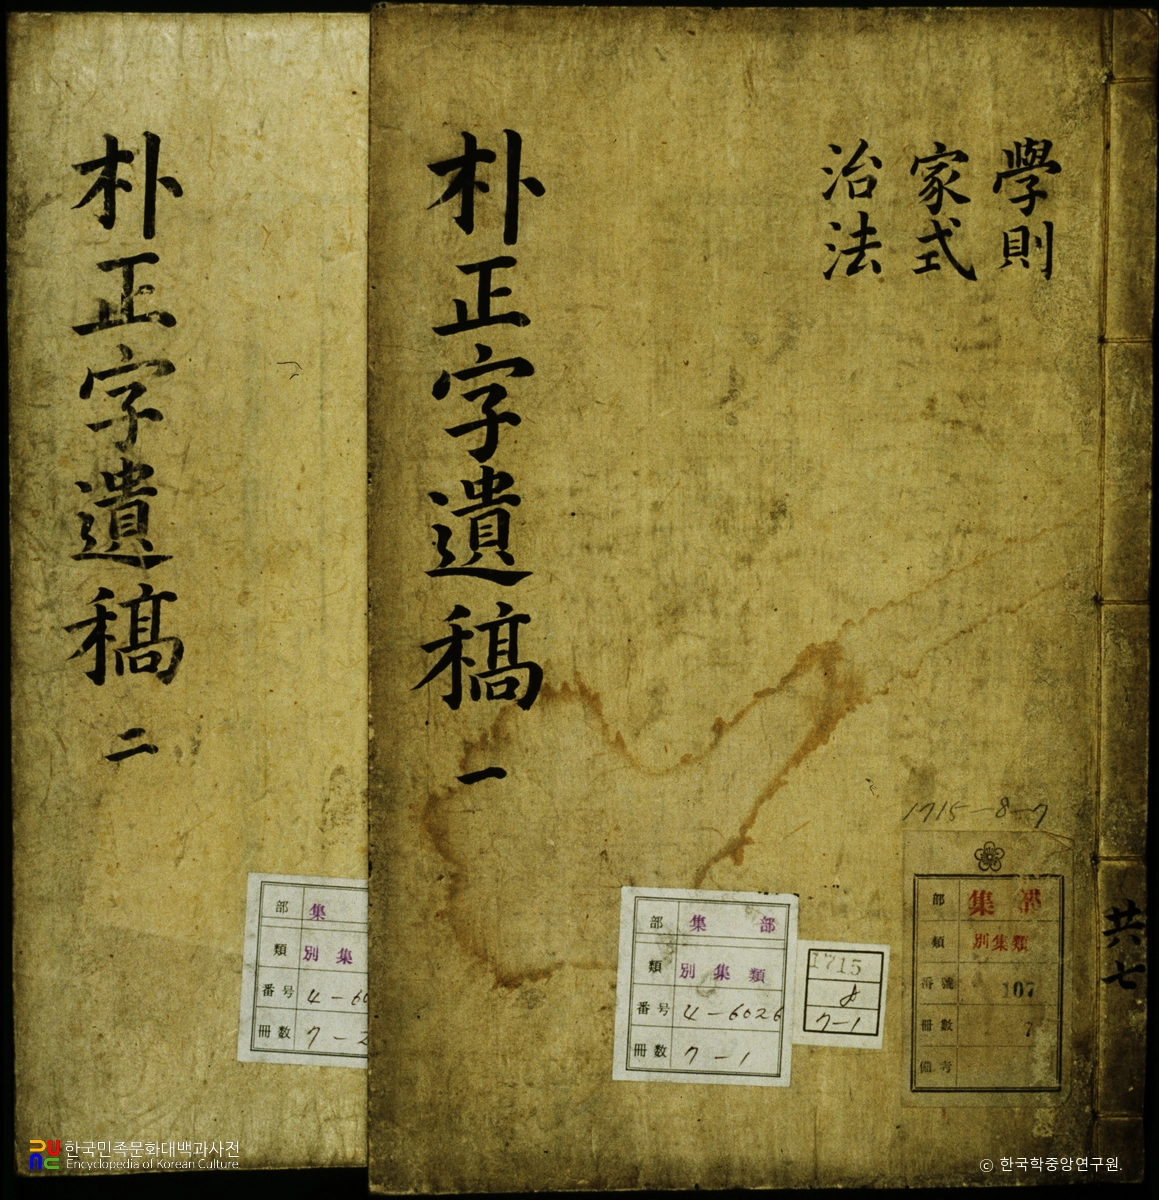 學則
家式
治法
朴正字遺稿 一
共七
朴正字遺稿 二
1715-8-7
部 集 部
類 別集類
番號 107
冊數 7
備考
1715
7-1
部 集 部
類 別集類
番号 4-6026
冊数 7-1
部 集
類 別集
番号 4-60
冊数 7-2
한국민족문화대백과사전
Encyclopedia of Korean Culture
© 한국학중앙연구원.